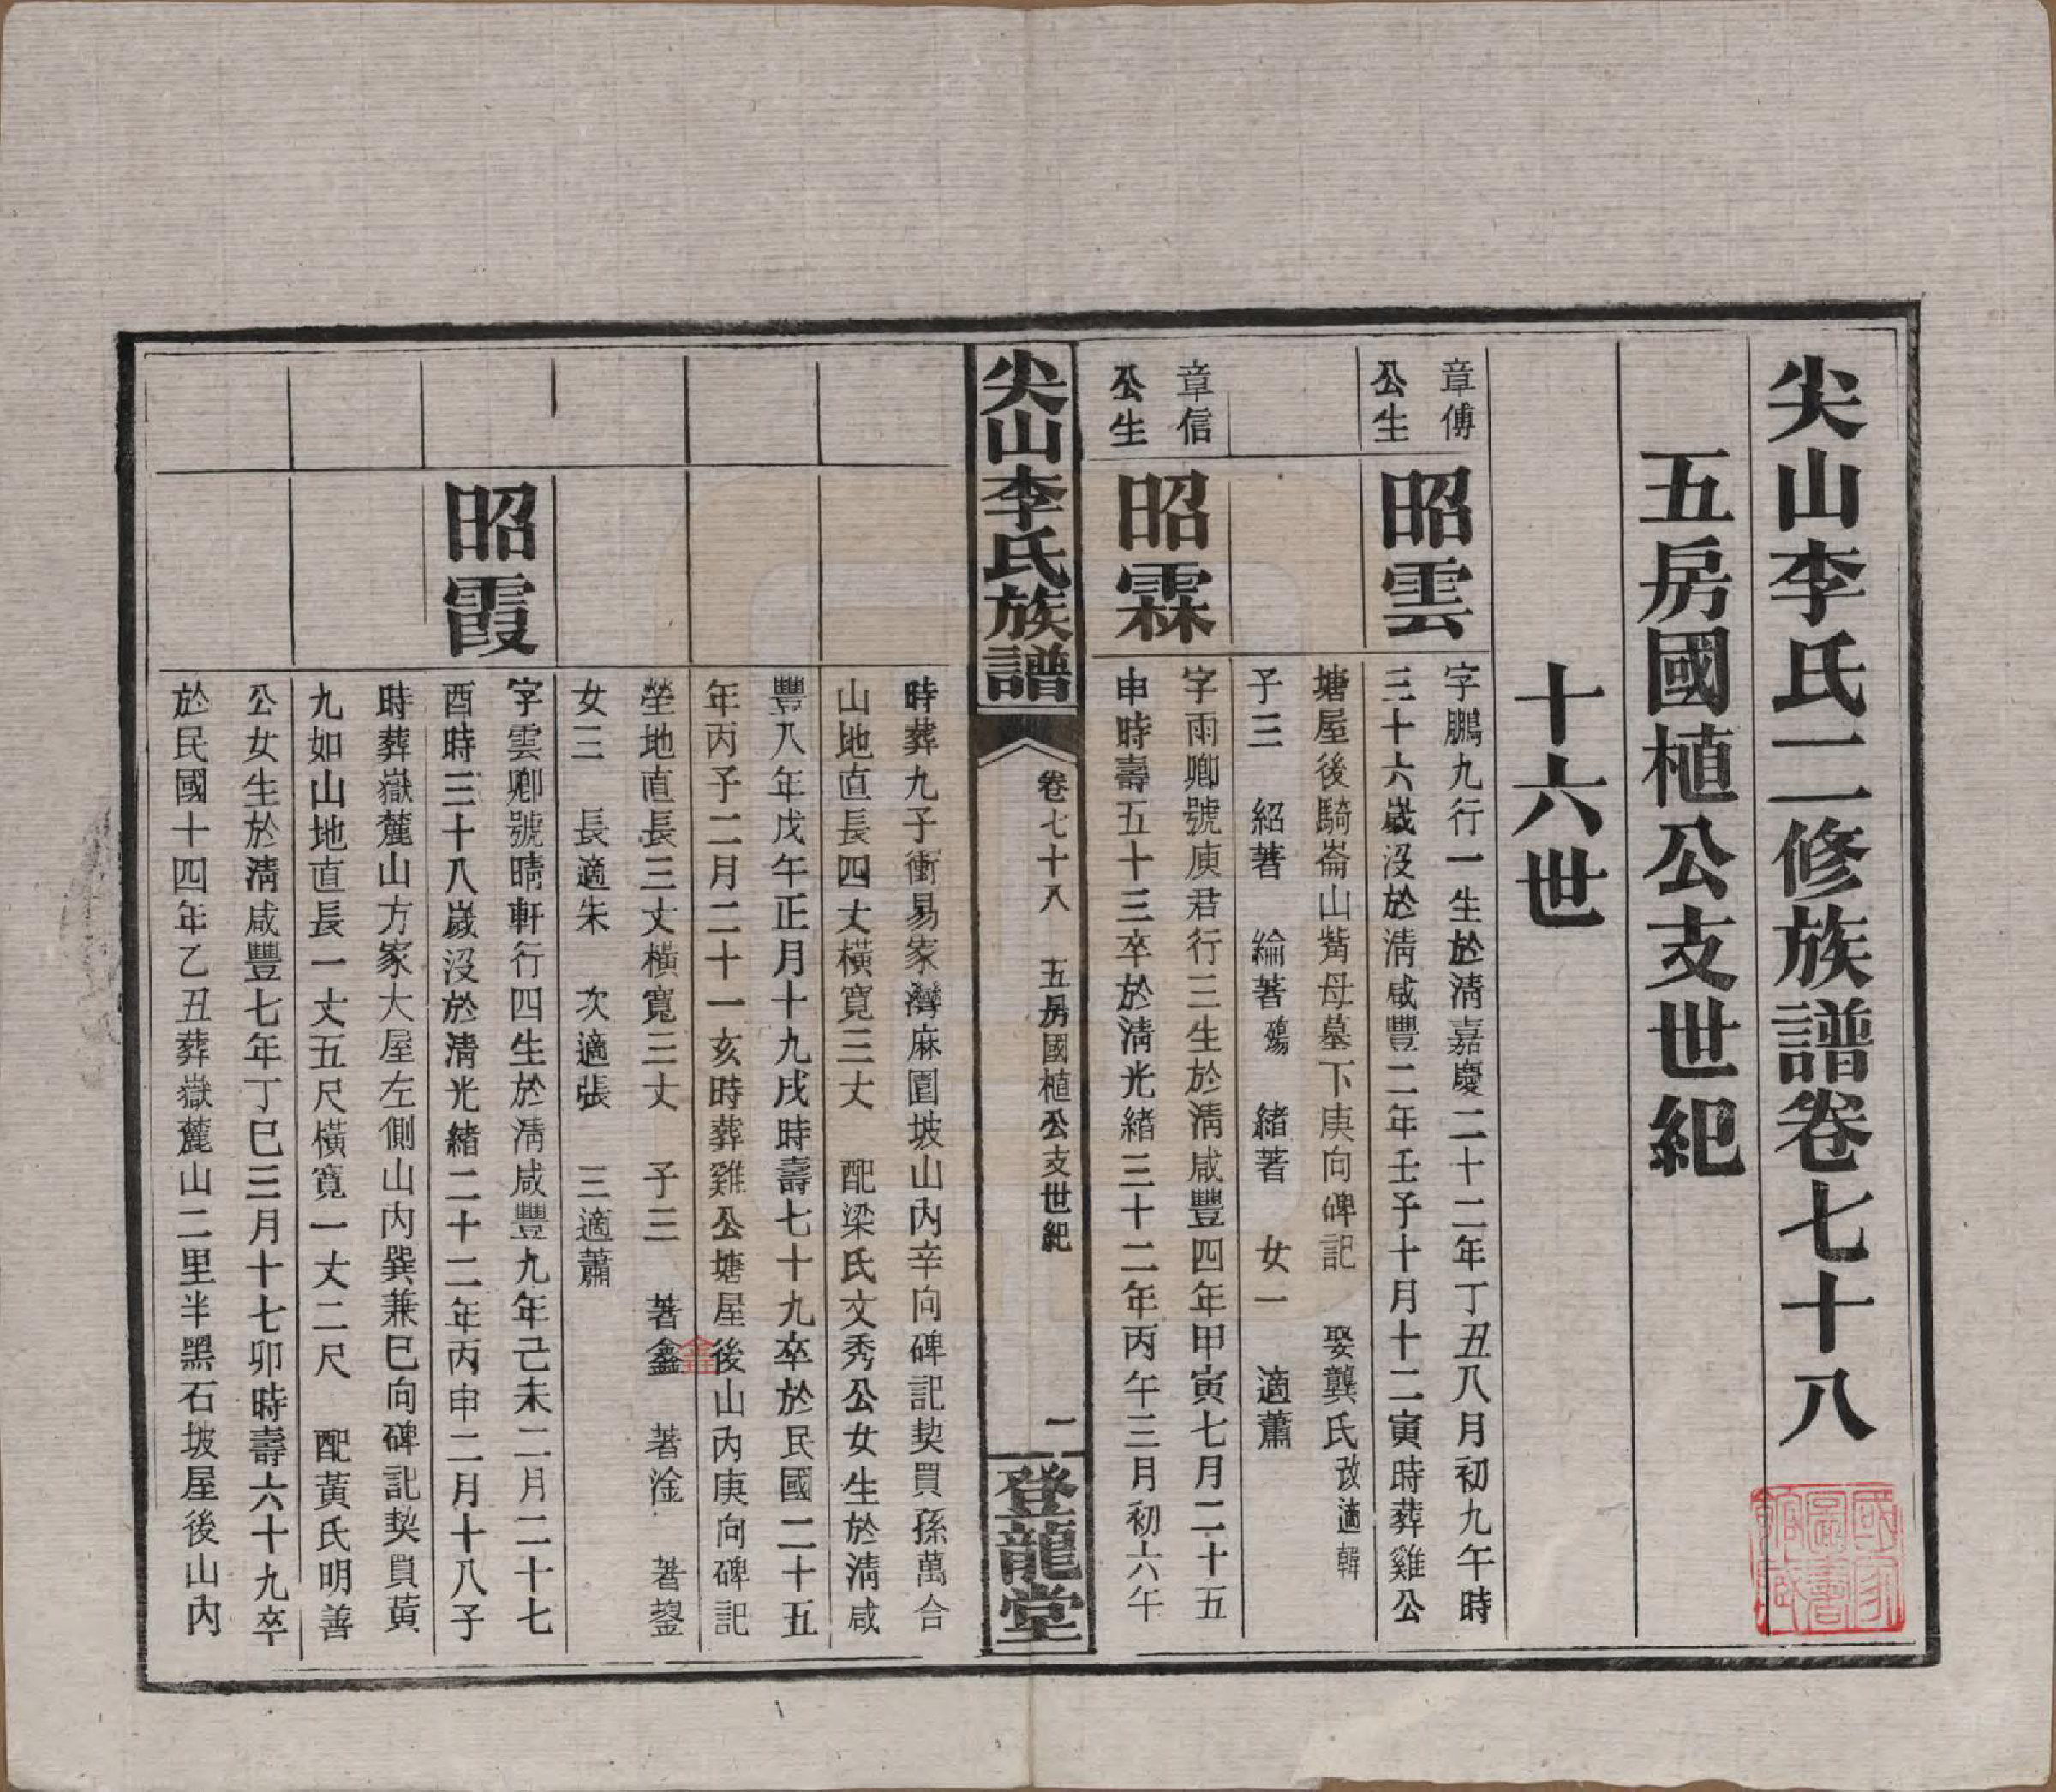 尖山李氏二修族譜卷七十八
五房國植公支世紀
十六世
章傅
公生
昭雲
字鵬九行一生於清嘉慶二十二年丁丑八月初九午時
三十六歲沒於清咸豐二年壬子十月十二寅時葬雞公
塘屋後騎崙山觜母墓下庚向碑記 娶龔氏改適韓
子三 紹著 綸著殤 緒著 女一 適蕭
章信
公生
昭霖
字雨卿號庚君行三生於清咸豐四年甲寅七月二十五
申時壽五十三卒於清光緒三十二年丙午三月初六午
尖山李氏族譜
卷七十八 五房國植公支世紀
一
登龍堂
時葬九子衝易家灣麻園坡山內辛向碑記契買孫萬合
山地直長四丈橫寬三丈 配梁氏文秀公女生於清咸
豐八年戊午正月十九戌時壽七十九卒於民國二十五
年丙子二月二十一亥時葬雞公塘屋後山內庚向碑記
塋地直長三丈橫寬三丈 子三 著鑫 著淦 著鋆
女三 長適朱 次適張 三適蕭
昭霞
字雲卿號晴軒行四生於清咸豐九年己未二月二十七
酉時三十八歲沒於清光緒二十二年丙申二月十八子
時葬嶽麓山方家大屋左側山內巽兼巳向碑記契買黃
九如山地直長一丈五尺橫寬一丈二尺 配黃氏明善
公女生於清咸豐七年丁巳三月十七卯時壽六十九卒
於民國十四年乙丑葬嶽麓山二里半黑石坡屋後山內